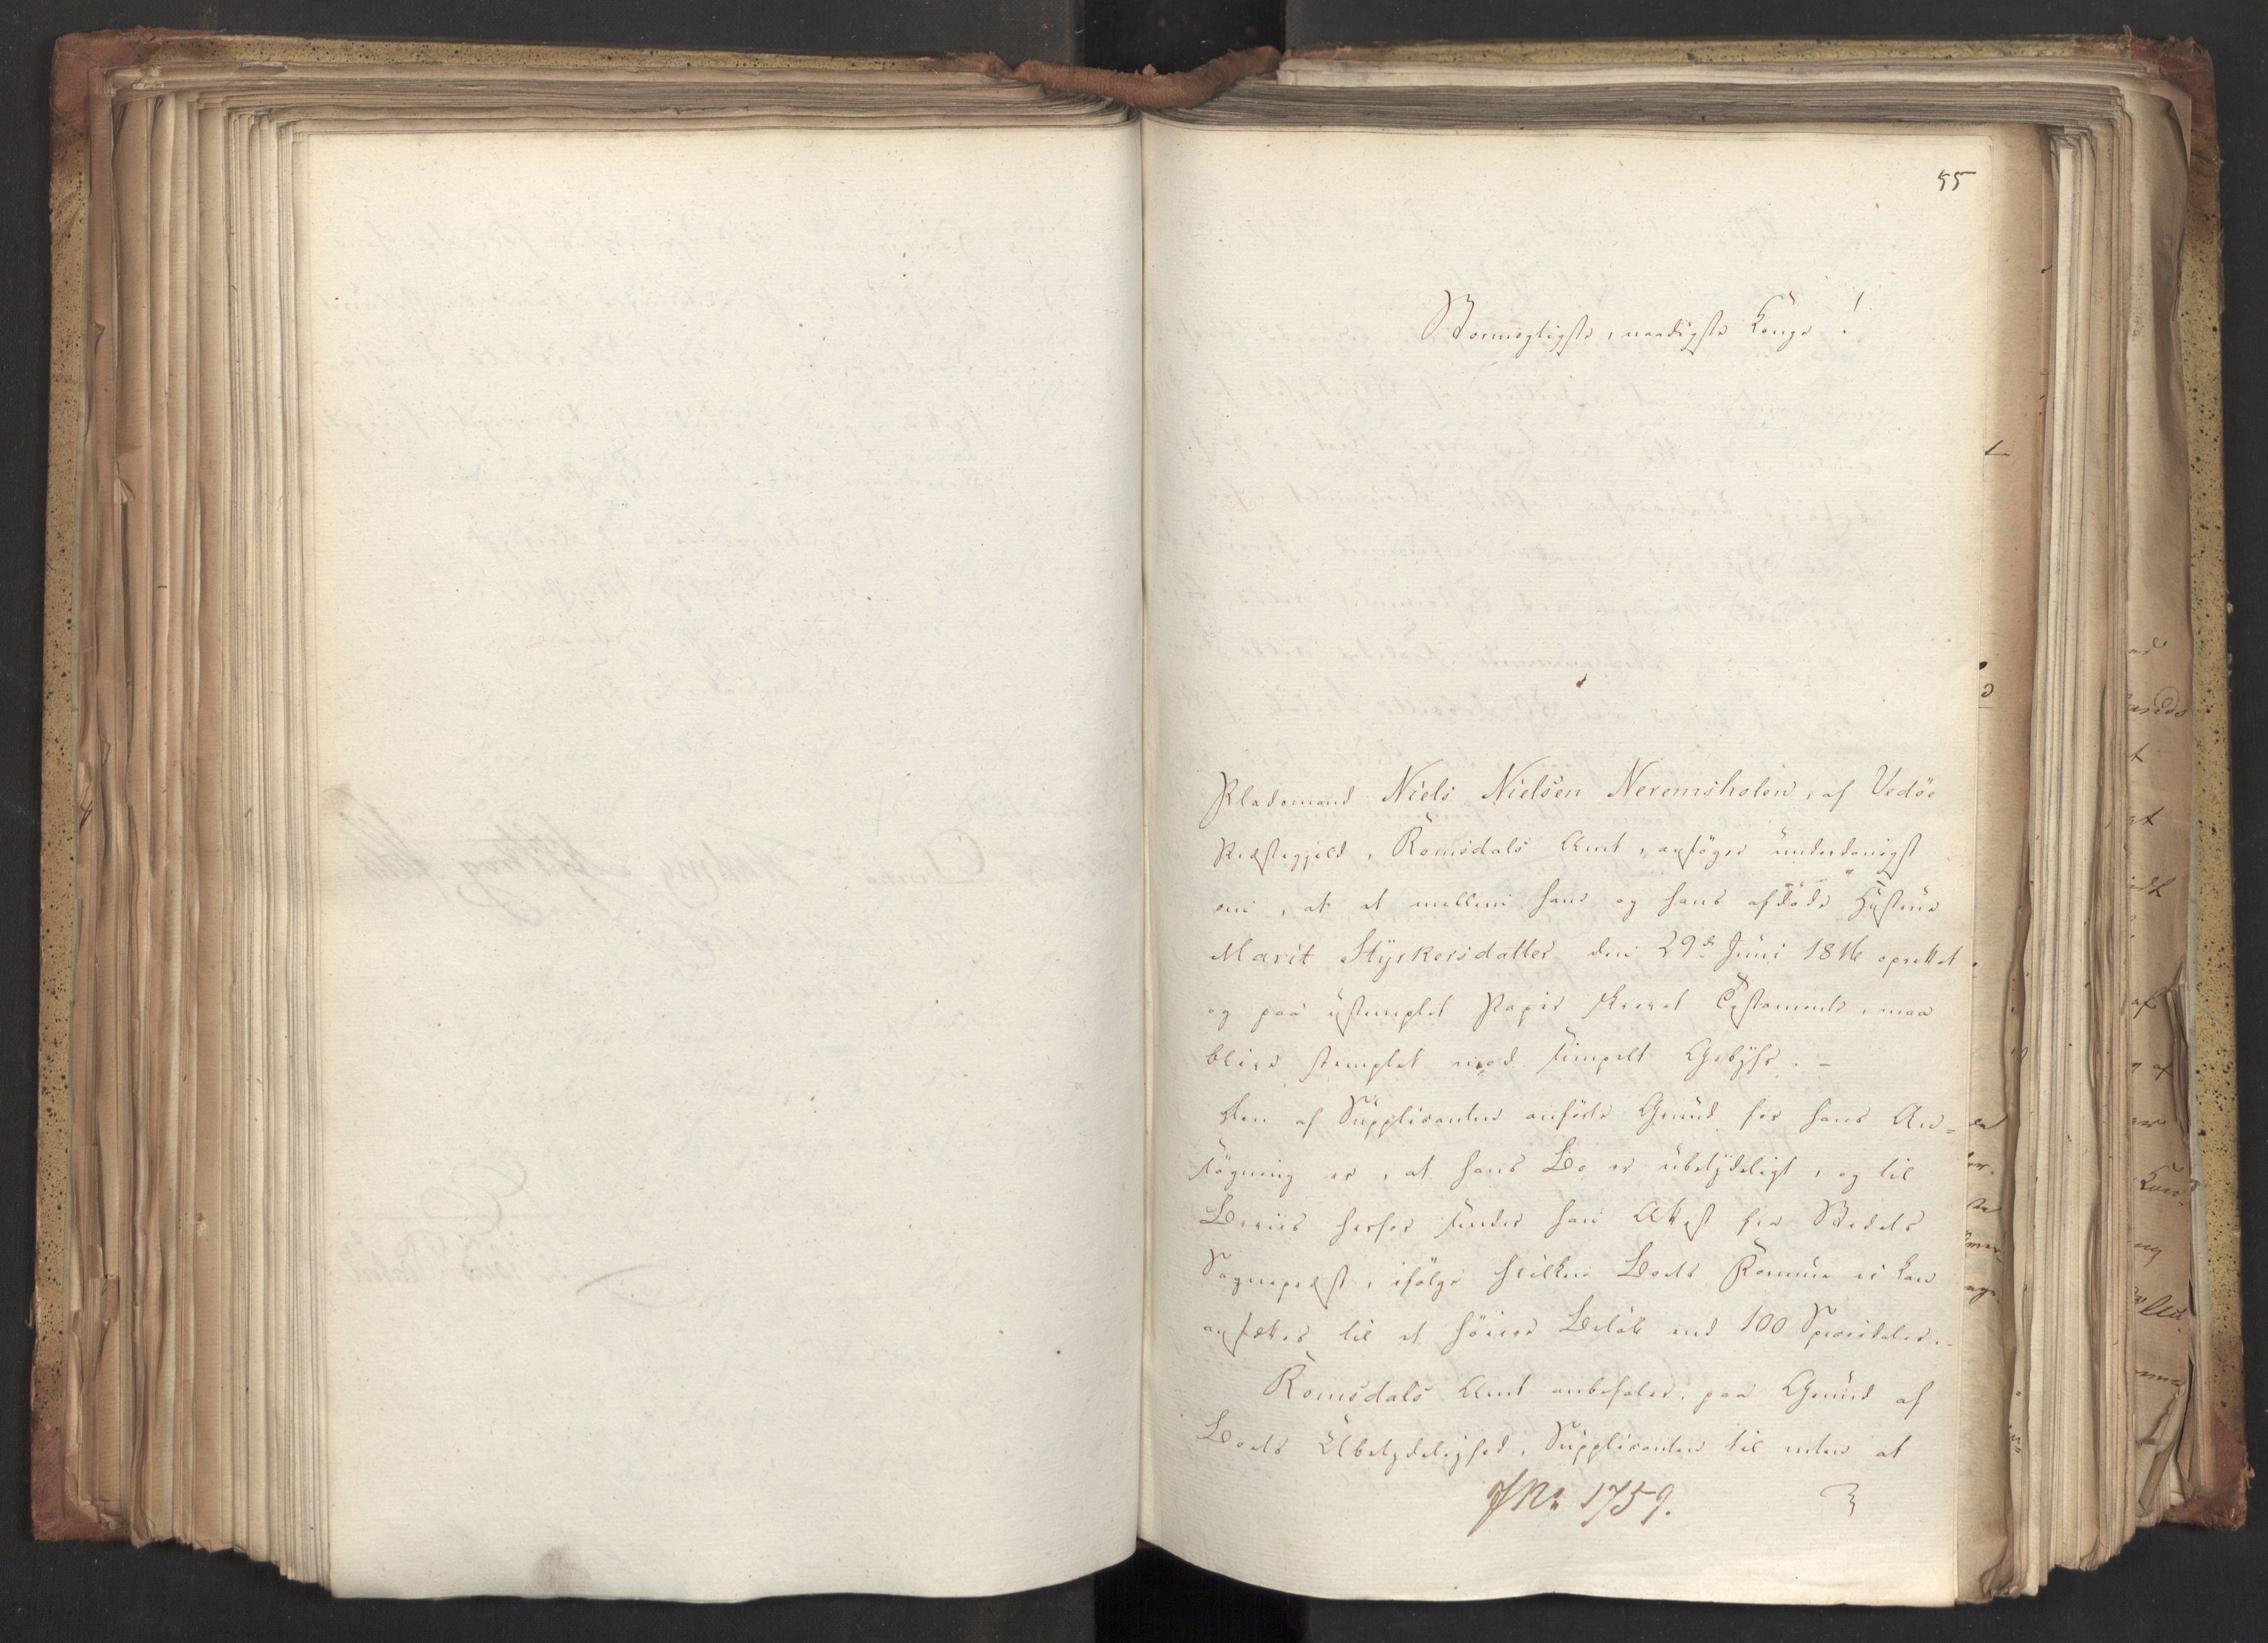 55
Stormægtigste, naadigste Konge!
Pladsmand Niels Nielsen Neremsholen, af Vedöe
Præstegjeld, Romsdals Amt, ansöger underdanigst
om, at et mellem ham og hans afdöde Hustrue
Marit Styrkersdatter den 29de Juni 1816 oprettet
og paa ustemplet Papir skrevet Testamente, maa
blive stemplet med simpelt Gebyhr. –
Den af Supplicanten anförte Grund for hans An-
sögning er, at hans Bo er ubetydeligt, og til
Beviis herfor sender han Attest fra Stedets
Sognepræst, ifölge hvilken Boets Formue ei kan
ansættes til et höiere Belöb end 100 Speciedaler.
Romsdals Amt anbefaler, paa Grund af
Boets Ubetydelighed, Supplicanten til uden at
JNr 1759.